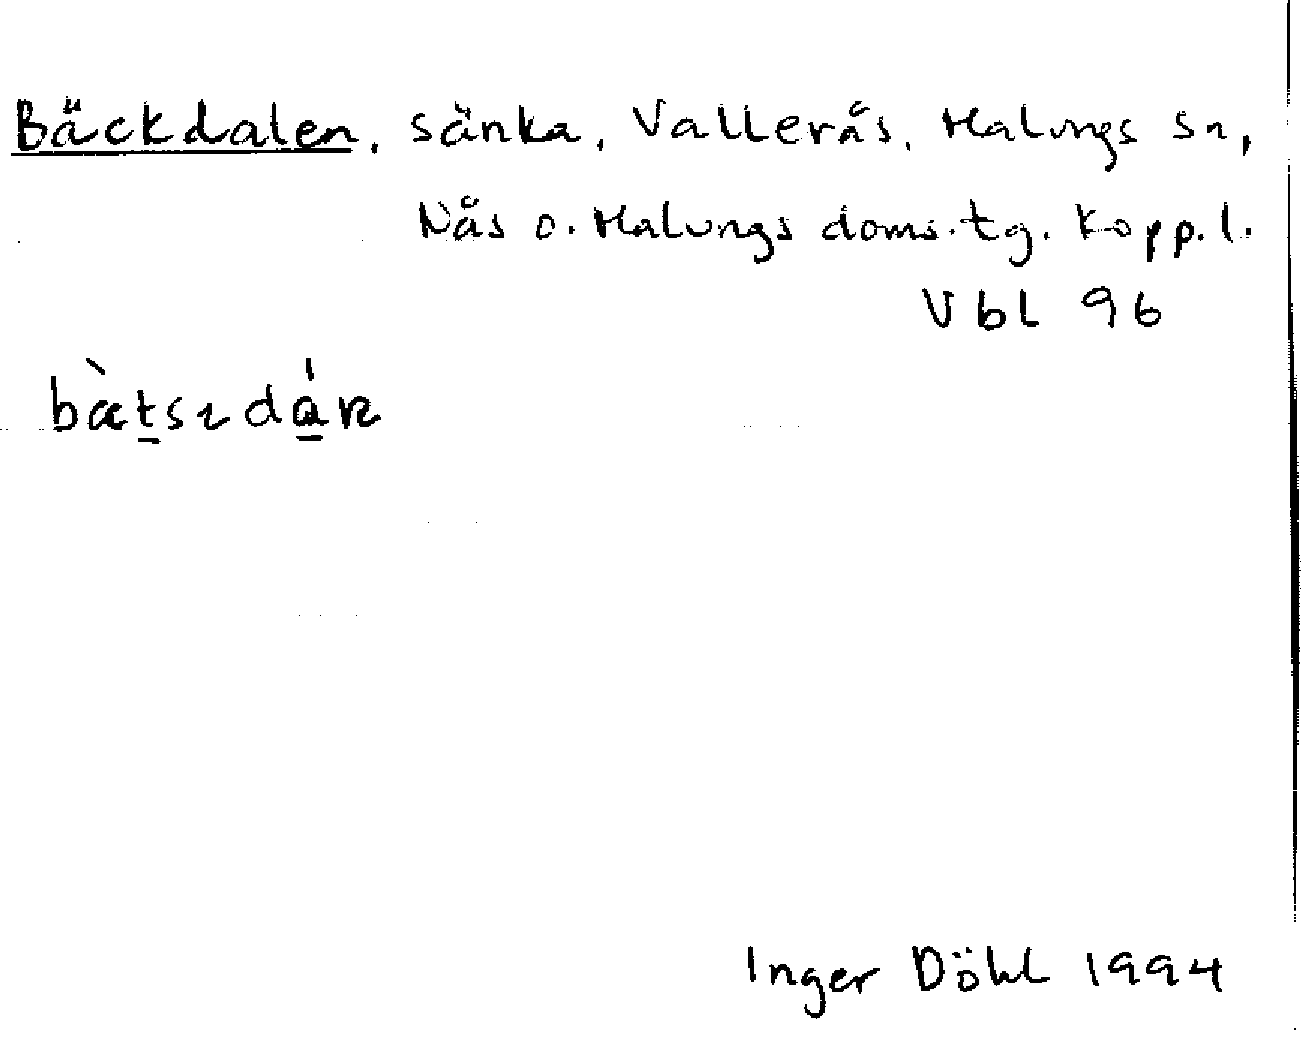 Bäckdalen, sänka, Vallerås, Malungs sn,
Nås o. Malungs doms.tg. Kopp.l.
Vbl 96
Inger Döhl 1994